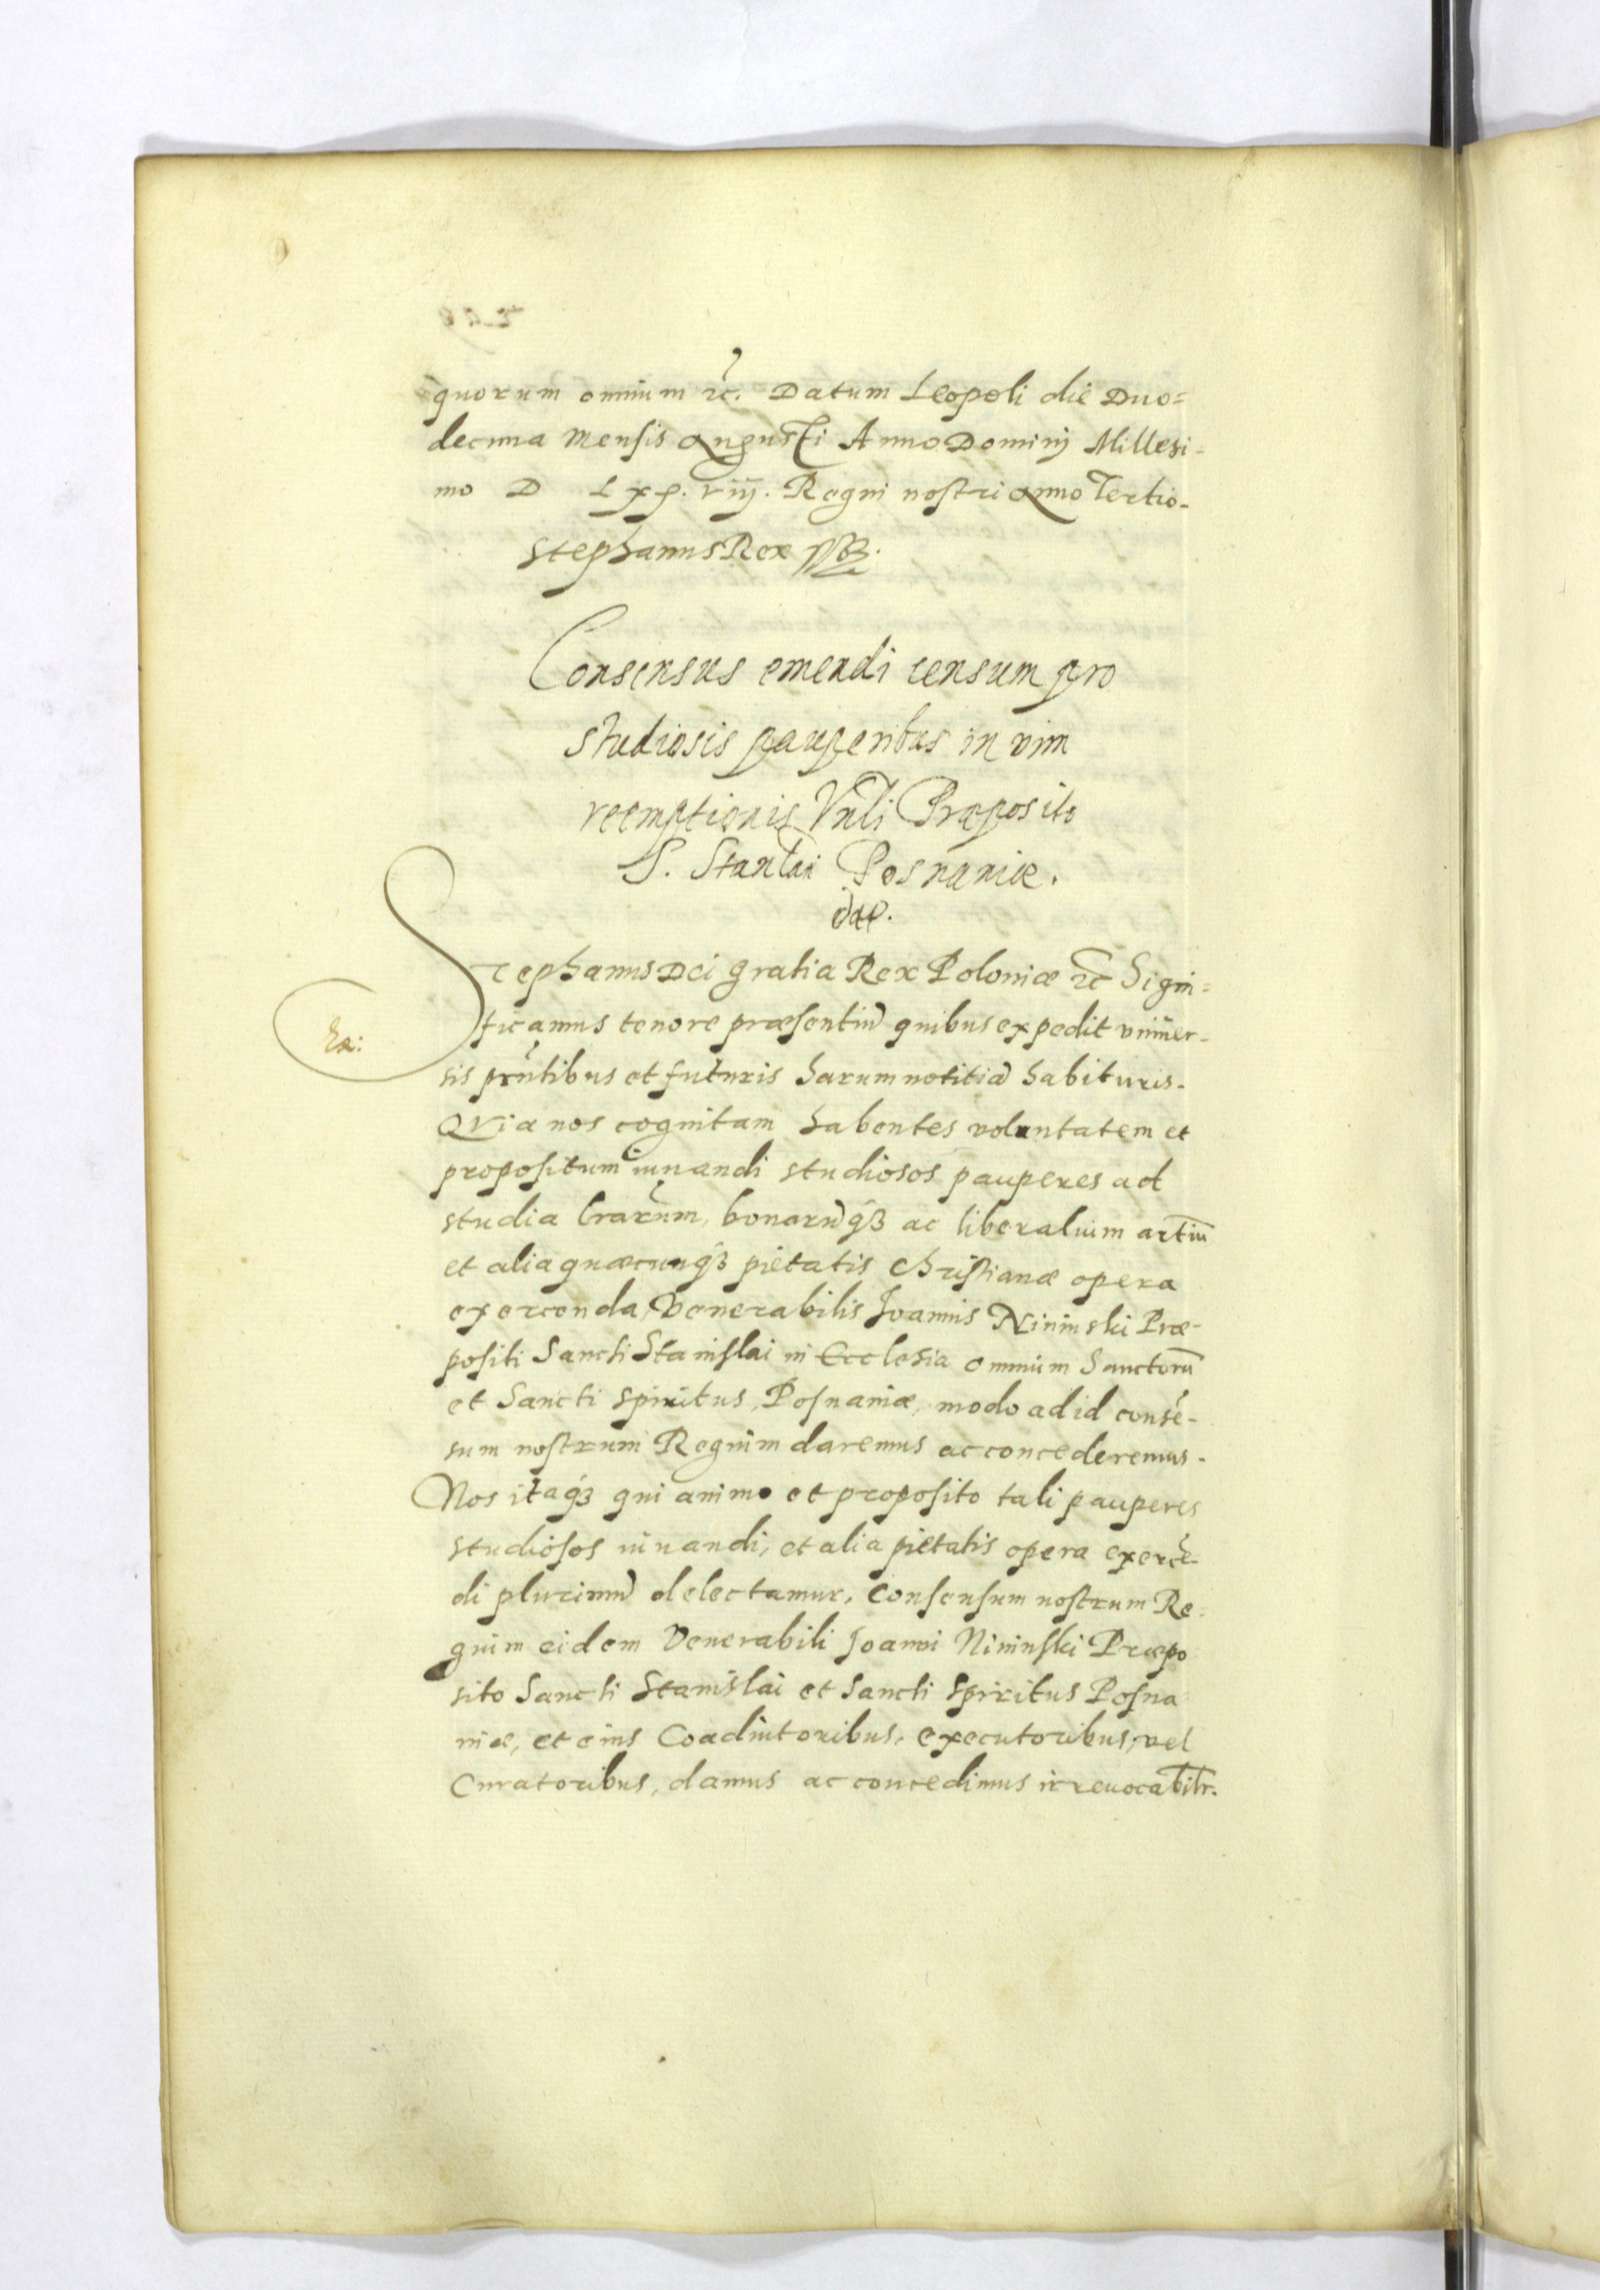 quorum omnium etc. Datum Leopoli die Duo=
decima Mensis Augusti Anno Dominij Millesi-
mo D Lxx. viij. Regni nostri anno Tertio.
Stephanus Rex
Consensus emendi censum pro
studiosis pauperibus in vim
reemptionis Vnli Præposito
S. Stanlai Posnaniæ.
dat.
Stephanus Dei gratia Rex Poloniæ etc Signi=
ficamus tenore præsentiũ quibus expedit vniuer-
sis prñtibus et futuris harum notitiã habituris.
QVia nos cognitam habentes voluntatem et
propositum iuuandi studiosos pauperes ad
studia lrarum, bonarũq3 ac liberalium artiũ
et alia quæcunq3 pietatis christianæ opera
exercenda, Venerabilis Joannis Nininski Præ-
positi Sancti Stanislai in Ecclesia omnium Sanctorũ
et Sancti Spiritus, Posnaniæ, modo ad id consẽ-
sum nostrum Regium daremus ac concederemus.
Nos itaq3 qui animo et proposito tali pauperes
studiosos iuuandi, et alia pietatis opera exercẽ-
di plurimũ delectamur, Consensum nostrum Re-
gium eidem Venerabili Joanni Nininski Præpo
sito Sancti Stanislai et Sancti Spiritus Posna
niæ, et eius Coadiutoribus, executoribus, vel
Curatoribus, damus ac concedimus irreuocabilr.